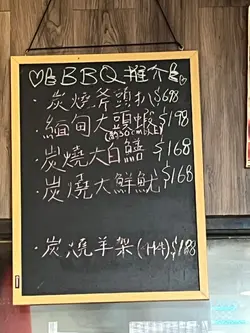 BBQ推介
·炭燒斧頭扒$698
·緬甸大頭蝦$198
·炭燒大白鱔$168
·炭燒大鮮魷$168
·炭燒羊架(4件)$188